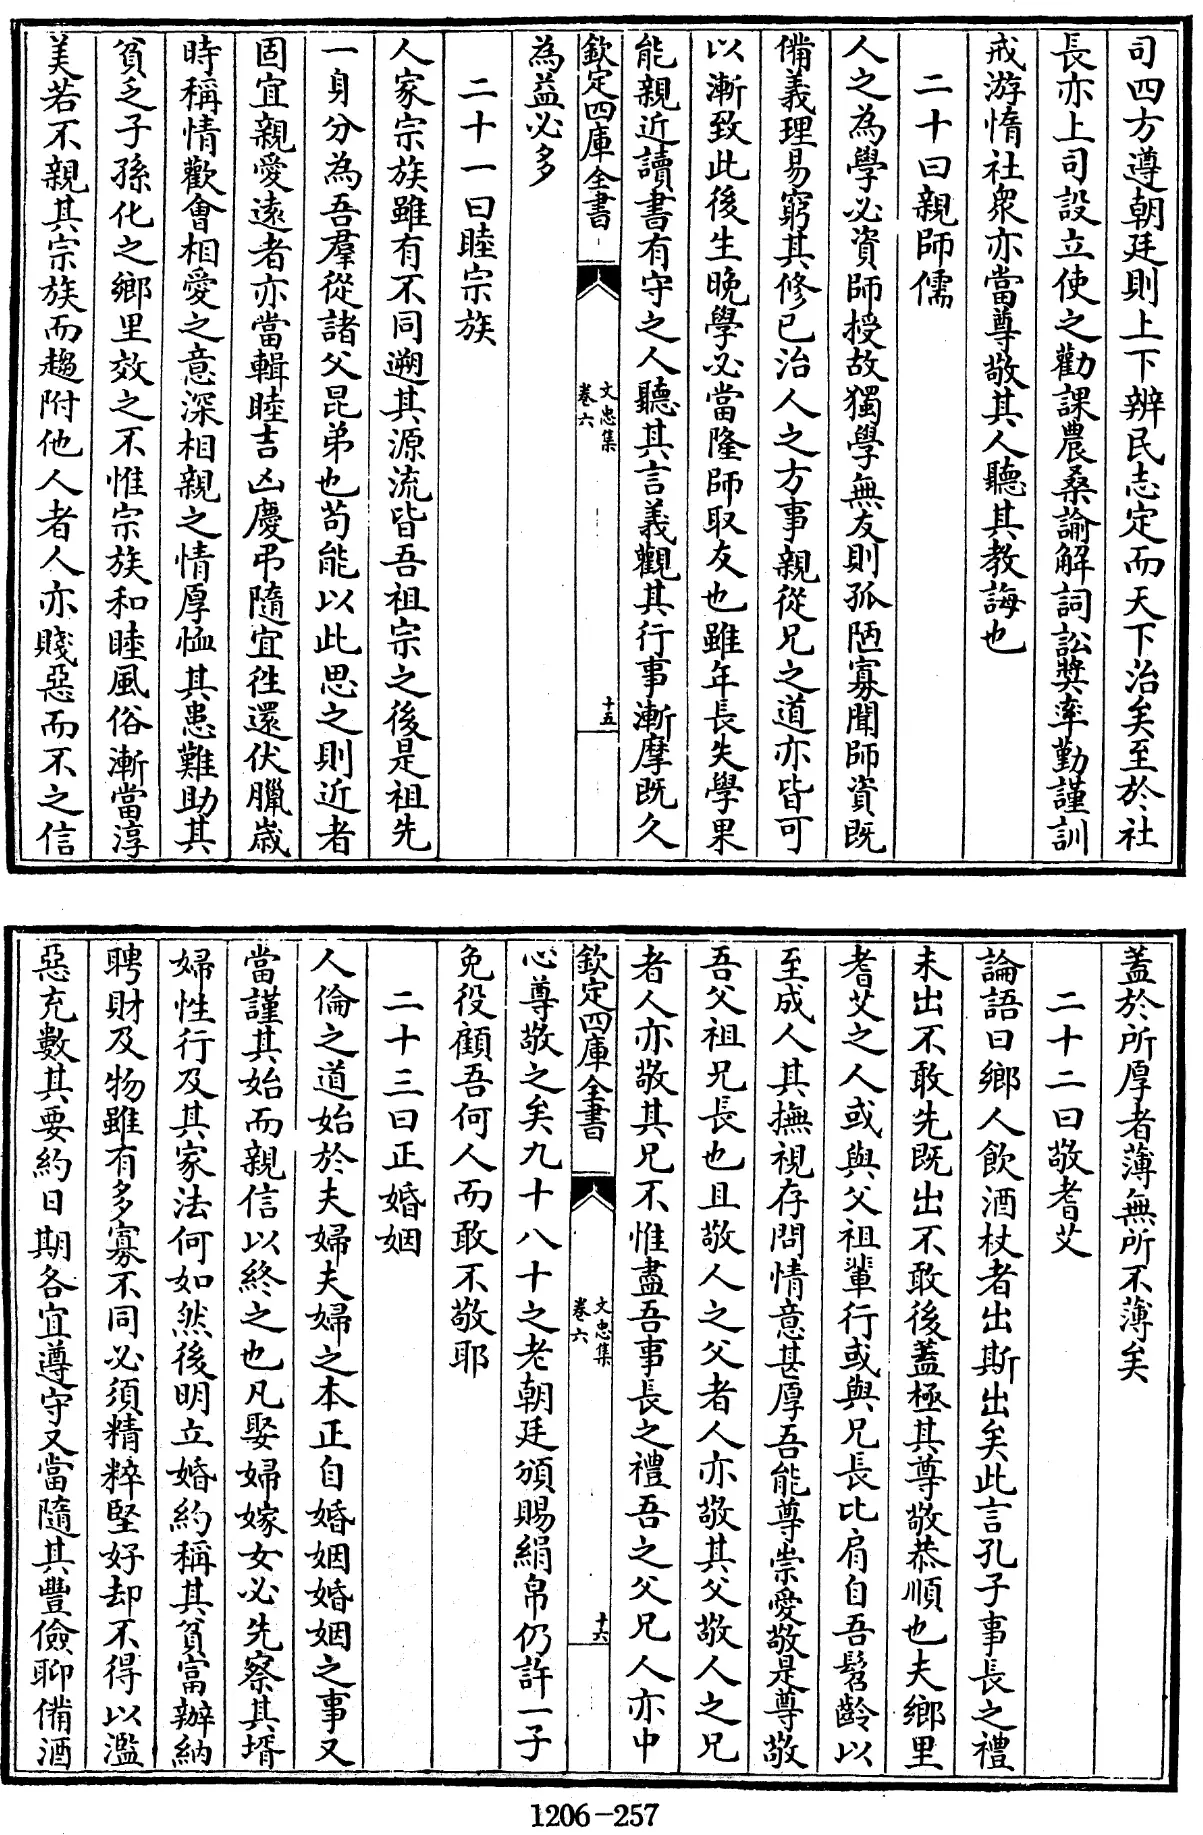 司四方遵朝廷則上下辨民志定而天下治矣至於社
長亦上司設立使之勸課農桑諭解詞訟奬率勤謹訓
戒游惰社衆亦當尊敬其人聽其教誨也
二十曰親師儒
人之為學必資師授故獨學無友則孤陋寡聞師資既
備義理易窮其修已治人之方事親從兄之道亦皆可
以漸致此後生晚學必當隆師取友也雖年長失學果
能親近讀書有守之人聽其言義觀其行事漸摩既久
欽定四庫全書
文忠集
卷六
十五
為益必多
二十一曰睦宗族
人家宗族雖有不同遡其源流皆吾祖宗之後是祖先
一身分為吾羣從諸父昆弟也苟能以此思之則近者
固宜親愛遠者亦當輯睦吉凶慶弔隨宜徃還伏臘歲
時稱情歡會相愛之意深相親之情厚恤其患難助其
貧乏子孫化之鄉里效之不惟宗族和睦風俗漸當淳
美若不親其宗族而趨附他人者人亦賤惡而不之信
蓋於所厚者薄無所不薄矣
二十二曰敬耆艾
論語曰鄉人飲酒杖者出斯出矣此言孔子事長之禮
未出不敢先既出不敢後蓋極其尊敬恭順也夫鄉里
耆艾之人或與父祖輩行或與兄長比肩自吾髫齡以
至成人其撫視存問情意甚厚吾能尊崇愛敬是尊敬
吾父祖兄長也且敬人之父者人亦敬其父敬人之兄
者人亦敬其兄不惟盡吾事長之禮吾之父兄人亦中
欽定四庫全書
文忠集
卷六
十六
心尊敬之矣九十八十之老朝廷頒賜絹帛仍許一子
免役顧吾何人而敢不敬耶
二十三曰正婚姻
人倫之道始於夫婦夫婦之本正自婚姻婚姻之事又
當謹其始而親信以終之也凡娶婦嫁女必先察其壻
婦性行及其家法何如然後明立婚約稱其貧富辦納
聘財及物雖有多寡不同必須精粹堅好却不得以濫
惡充數其要約日期各宜遵守又當隨其豐儉聊備酒
1206-257